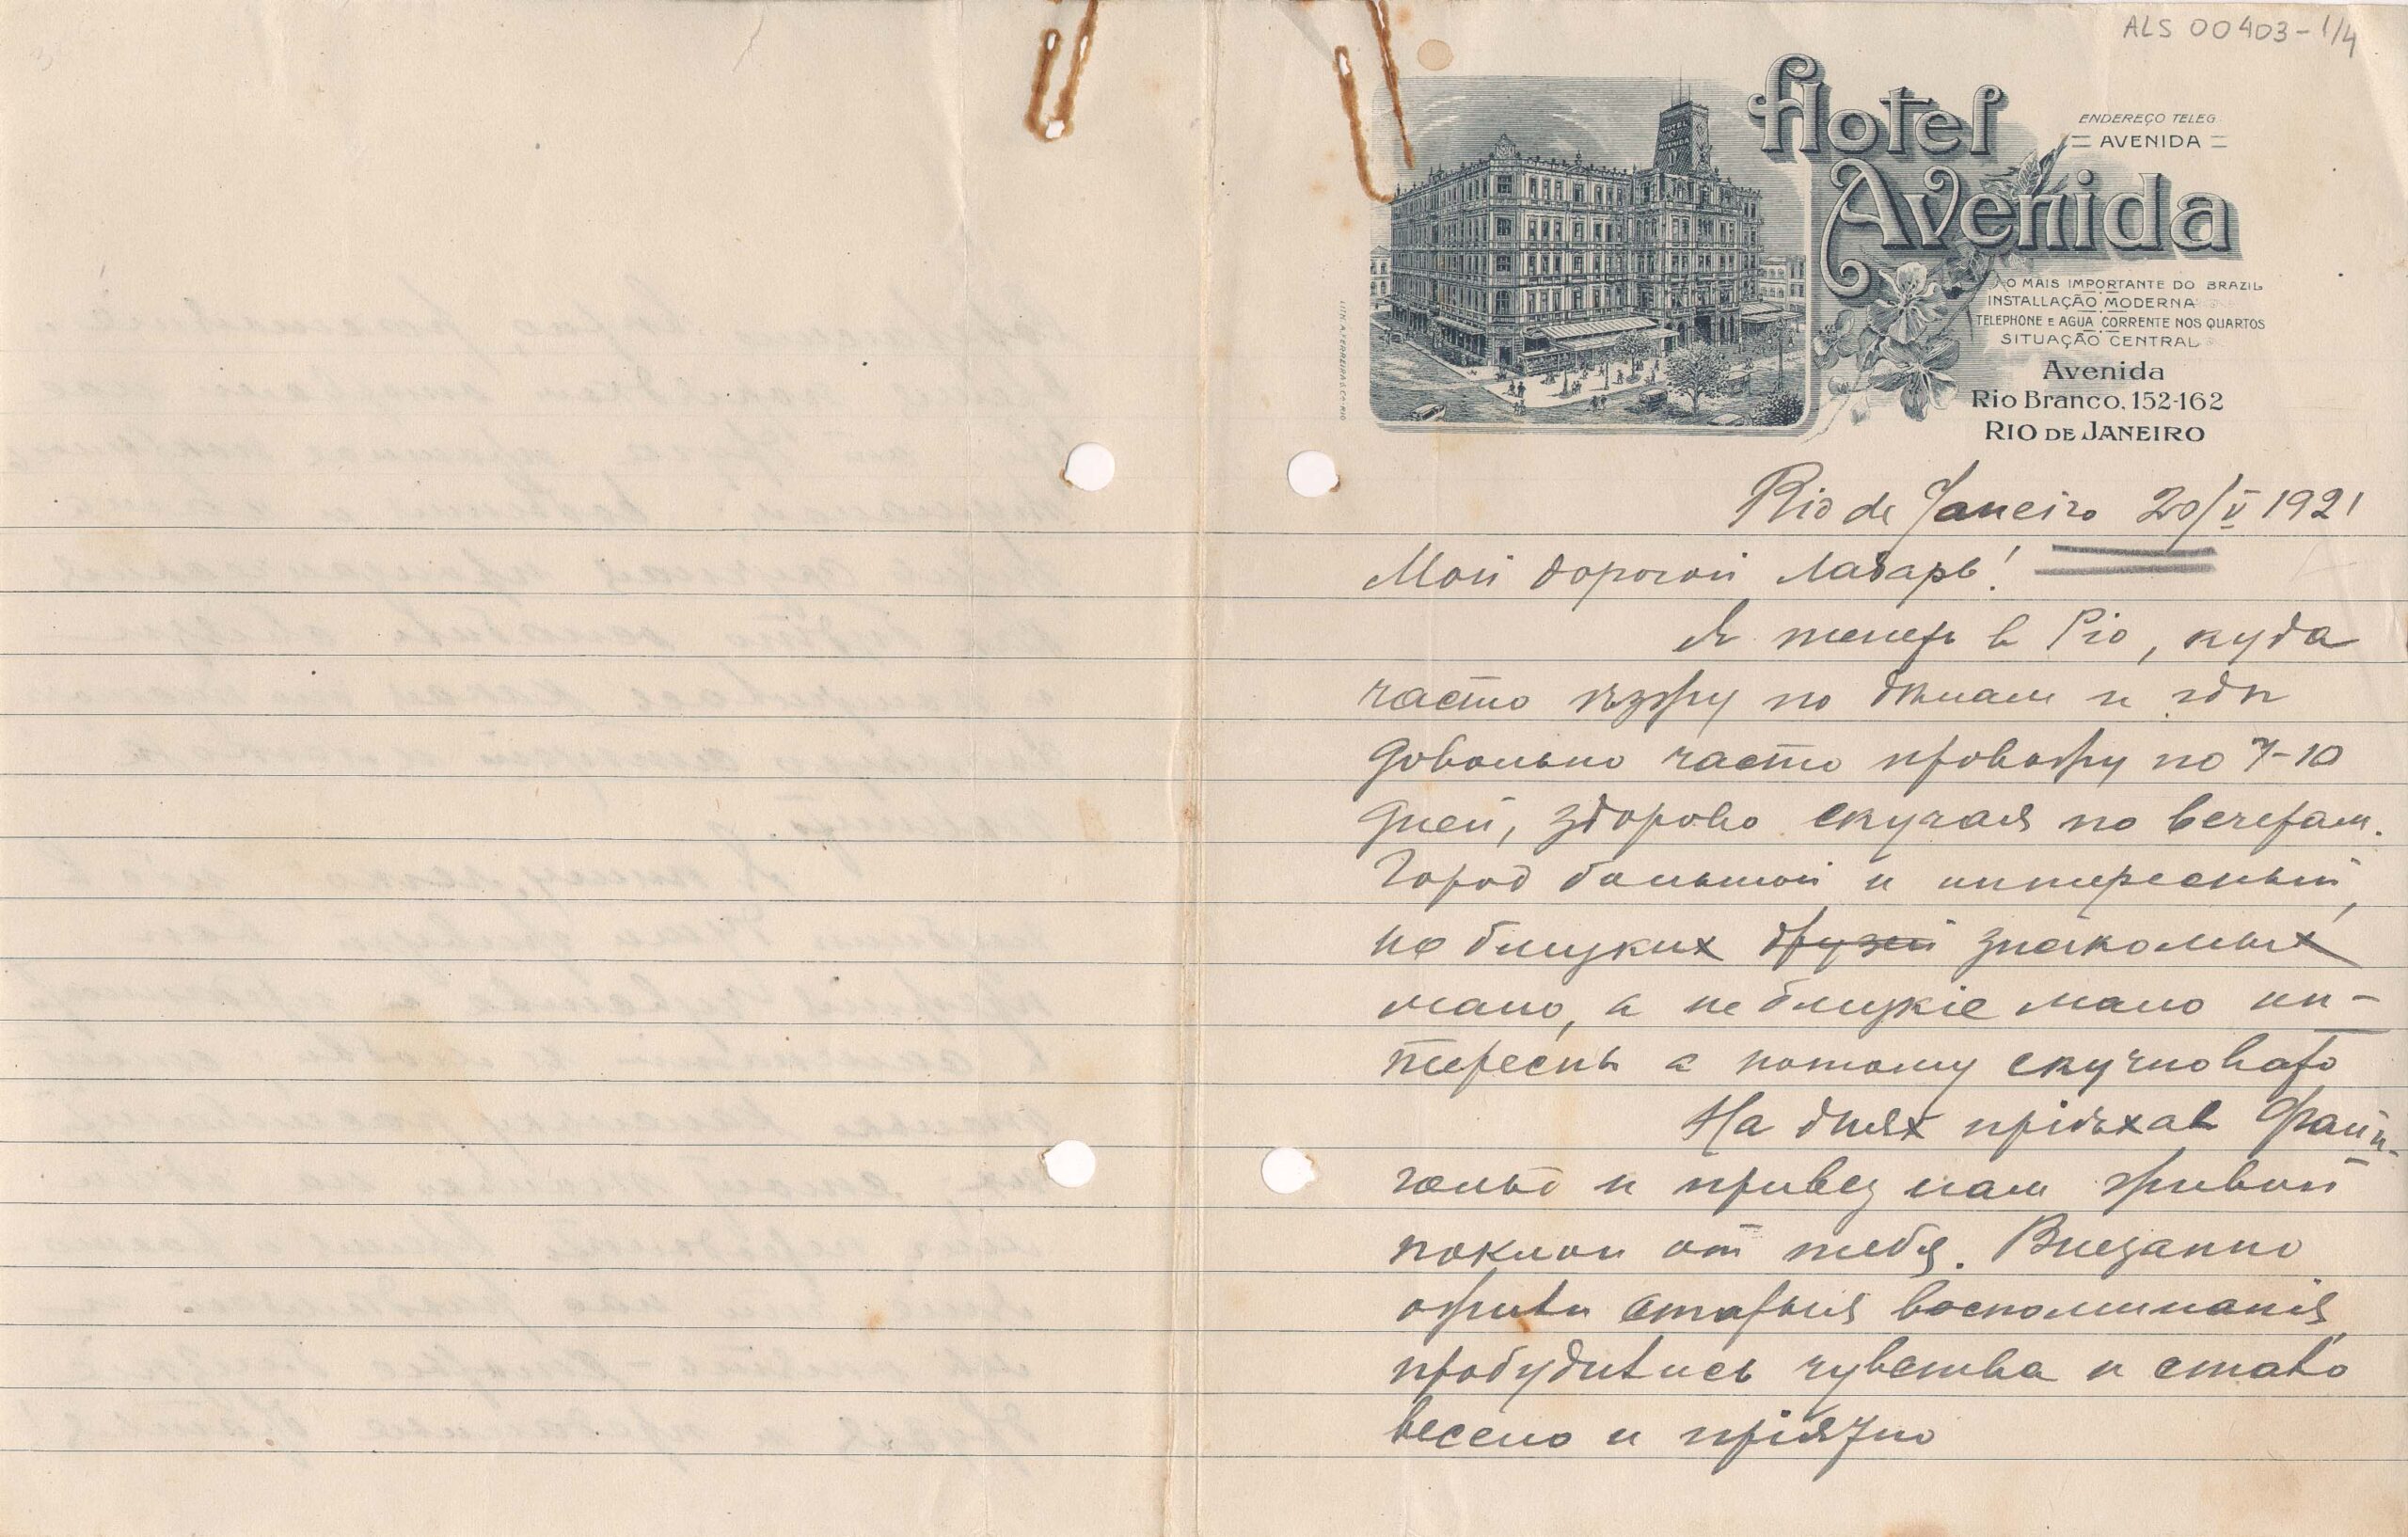 ALS 00403-1/4
Hotel
Avenida
ENDEREÇO TELEG
AVENIDA
HOTEL
AVENIDA
O MAIS IMPORTANTE DO BRAZIL
INSTALLAÇÃO MODERNA
TELEPHONE E AGUA CORRENTE NOS QUARTOS
SITUAÇÃO CENTRAL
Avenida
Rio Branco, 152-162
RIO DE JANEIRO
LITH. A. FERREIRA & Cº RIO
Rio de Janeiro 20/V 1921
Мой дорогой Лазарь!
Я теперь в Рio, куда
часто ѣзжу по дѣлам и гдѣ
довольно часто провожу по 7-10
дней, здорово скучая по вечерам.
Город большой и интересный,
но близких друзей знакомых
мало, а не близкiе мало ин-
тересны а потому скучновато
На днях прiѣхал Файн-
гольд и привез нам живой
поклон от тебя. Внезапно
ожили старыя воспоминанiя,
пробудились чувства и стало
весело и прiятно